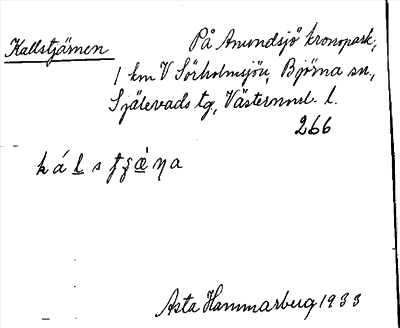 Kallstjärnen
På Anundsjö kronopark,
1 km V Sörholmsjön, Björna sn,
Själevads tg, Västernorrl. l.
266
Asta Hammarberg 1933